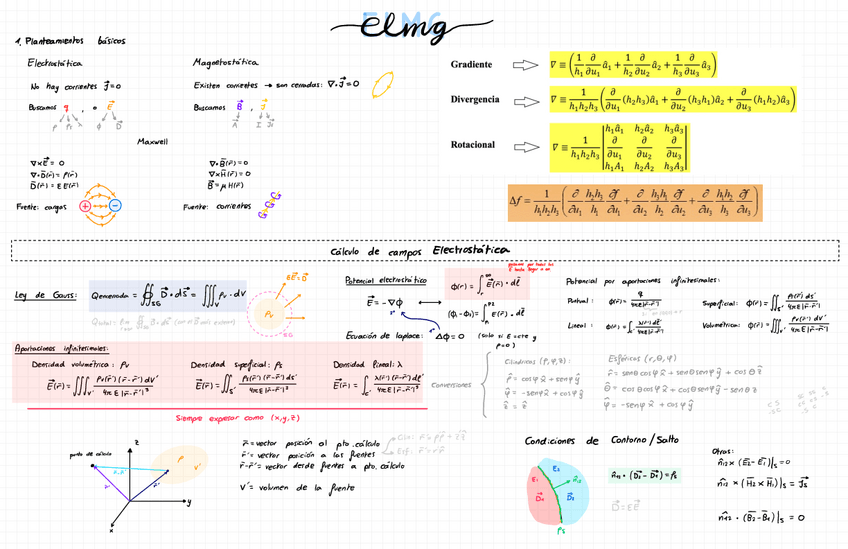 ELMG
elmg
1. Planteamientos básicos
Electrostática
No hay corrientes J⃗=0
Buscamos q, o E⃗
ρ ρs λ φ D⃗
Magnetostática
Existen corrientes → son cerradas: ∇·J⃗=0
Buscamos B⃗, J⃗
A⃗ I J⃗s
Maxwell
∇×E⃗ = 0
∇·D⃗(r⃗) = ρ(r⃗)
D⃗(r⃗) = ε E(r⃗)
Fuente: cargas
+ −
∇·B⃗(r⃗) = 0
∇×H⃗(r⃗) = J⃗
B⃗ = μ H(r⃗)
Fuente: corrientes
Gradiente ∇ ≡ (1/h₁ ∂/∂u₁ â₁ + 1/h₂ ∂/∂u₂ â₂ + 1/h₃ ∂/∂u₃ â₃)
Divergencia ∇ ≡ 1/(h₁h₂h₃) (∂/∂u₁ (h₂h₃)â₁ + ∂/∂u₂ (h₃h₁)â₂ + ∂/∂u₃ (h₁h₂)â₃)
Rotacional ∇ ≡ 1/(h₁h₂h₃) |h₁â₁ h₂â₂ h₃â₃
∂/∂u₁ ∂/∂u₂ ∂/∂u₃
h₁A₁ h₂A₂ h₃A₃|
Δf = 1/(h₁h₂h₃) (∂/∂u₁ h₂h₃/h₁ ∂f/∂u₁ + ∂/∂u₂ h₁h₃/h₂ ∂f/∂u₂ + ∂/∂u₃ h₁h₂/h₃ ∂f/∂u₃)
Cálculo de campos Electrostática
Ley de Gauss: Qencerrada = ∯SG D⃗·ds⃗ = ∭ρv·dv
εE⃗=D⃗
ρv
SG
Potencial electrostático
E⃗ = −∇φ ↔ φ(r⃗) = ∫ E(r⃗)·dl⃗
(φ₁−φ₂) = ∫ E(r⃗)·dl⃗
Ecuación de laplace: Δφ=0 (solo si ε=cte y ρ=0)
Potencial por aportaciones infinitesimales:
Puntual: φ(r⃗) = q/(4πε|r⃗−r⃗'|)
Lineal: φ(r⃗) = ∫ λ(r⃗')dl'/(4πε|r⃗−r⃗'|)
Superficial: φ(r⃗) = ∬s' ρs(r⃗')ds'/(4πε|r⃗−r⃗'|)
Volumétrica: φ(r⃗) = ∭v' ρv(r⃗')dv'/(4πε|r⃗−r⃗'|)
Aportaciones infinitesimales:
Densidad volumétrica: ρv
E⃗(r⃗) = ∭v' ρv(r⃗')(r⃗−r⃗')dv'/(4πε|r⃗−r⃗'|³)
Densidad superficial: ρs
E⃗(r⃗) = ∬s' ρs(r⃗')(r⃗−r⃗')ds'/(4πε|r⃗−r⃗'|³)
Densidad lineal: λ
E⃗(r⃗) = ∫ λ(r⃗')(r⃗−r⃗')dl'/(4πε|r⃗−r⃗'|³)
Siempre expresar como (x,y,z)
Conversiones
Cilíndricas (ρ,φ,z):
ρ̂ = cosφ x̂ + senφ ŷ
φ̂ = −senφ x̂ + cosφ ŷ
ẑ = ẑ
Esféricas (r,θ,φ)
r̂ = senθ cosφ x̂ + senθ senφ ŷ + cosθ ẑ
θ̂ = cosθ cosφ x̂ + cosθ senφ ŷ − senθ ẑ
φ̂ = −senφ x̂ + cosφ ŷ
punto de cálculo
z
y
x
ρ
v'
r⃗
r⃗'
r⃗ = vector posición al pto. cálculo
r⃗' = vector posición a las fuentes
r⃗−r⃗' = vector desde fuentes a pto. cálculo
v' = volumen de la fuente
Condiciones de Contorno/Salto
E₁
E₂
D⃗₁
D⃗₂
n̂₁₂
ρs
n̂₁₂·(D⃗₂−D⃗₁) = ρs
D⃗=εE⃗
Otras:
n̂₁₂×(E⃗₂−E⃗₁)|s = 0
n̂₁₂×(H⃗₂×H⃗₁)|s = J⃗s
n̂₁₂·(B⃗₂−B⃗₁)|s = 0